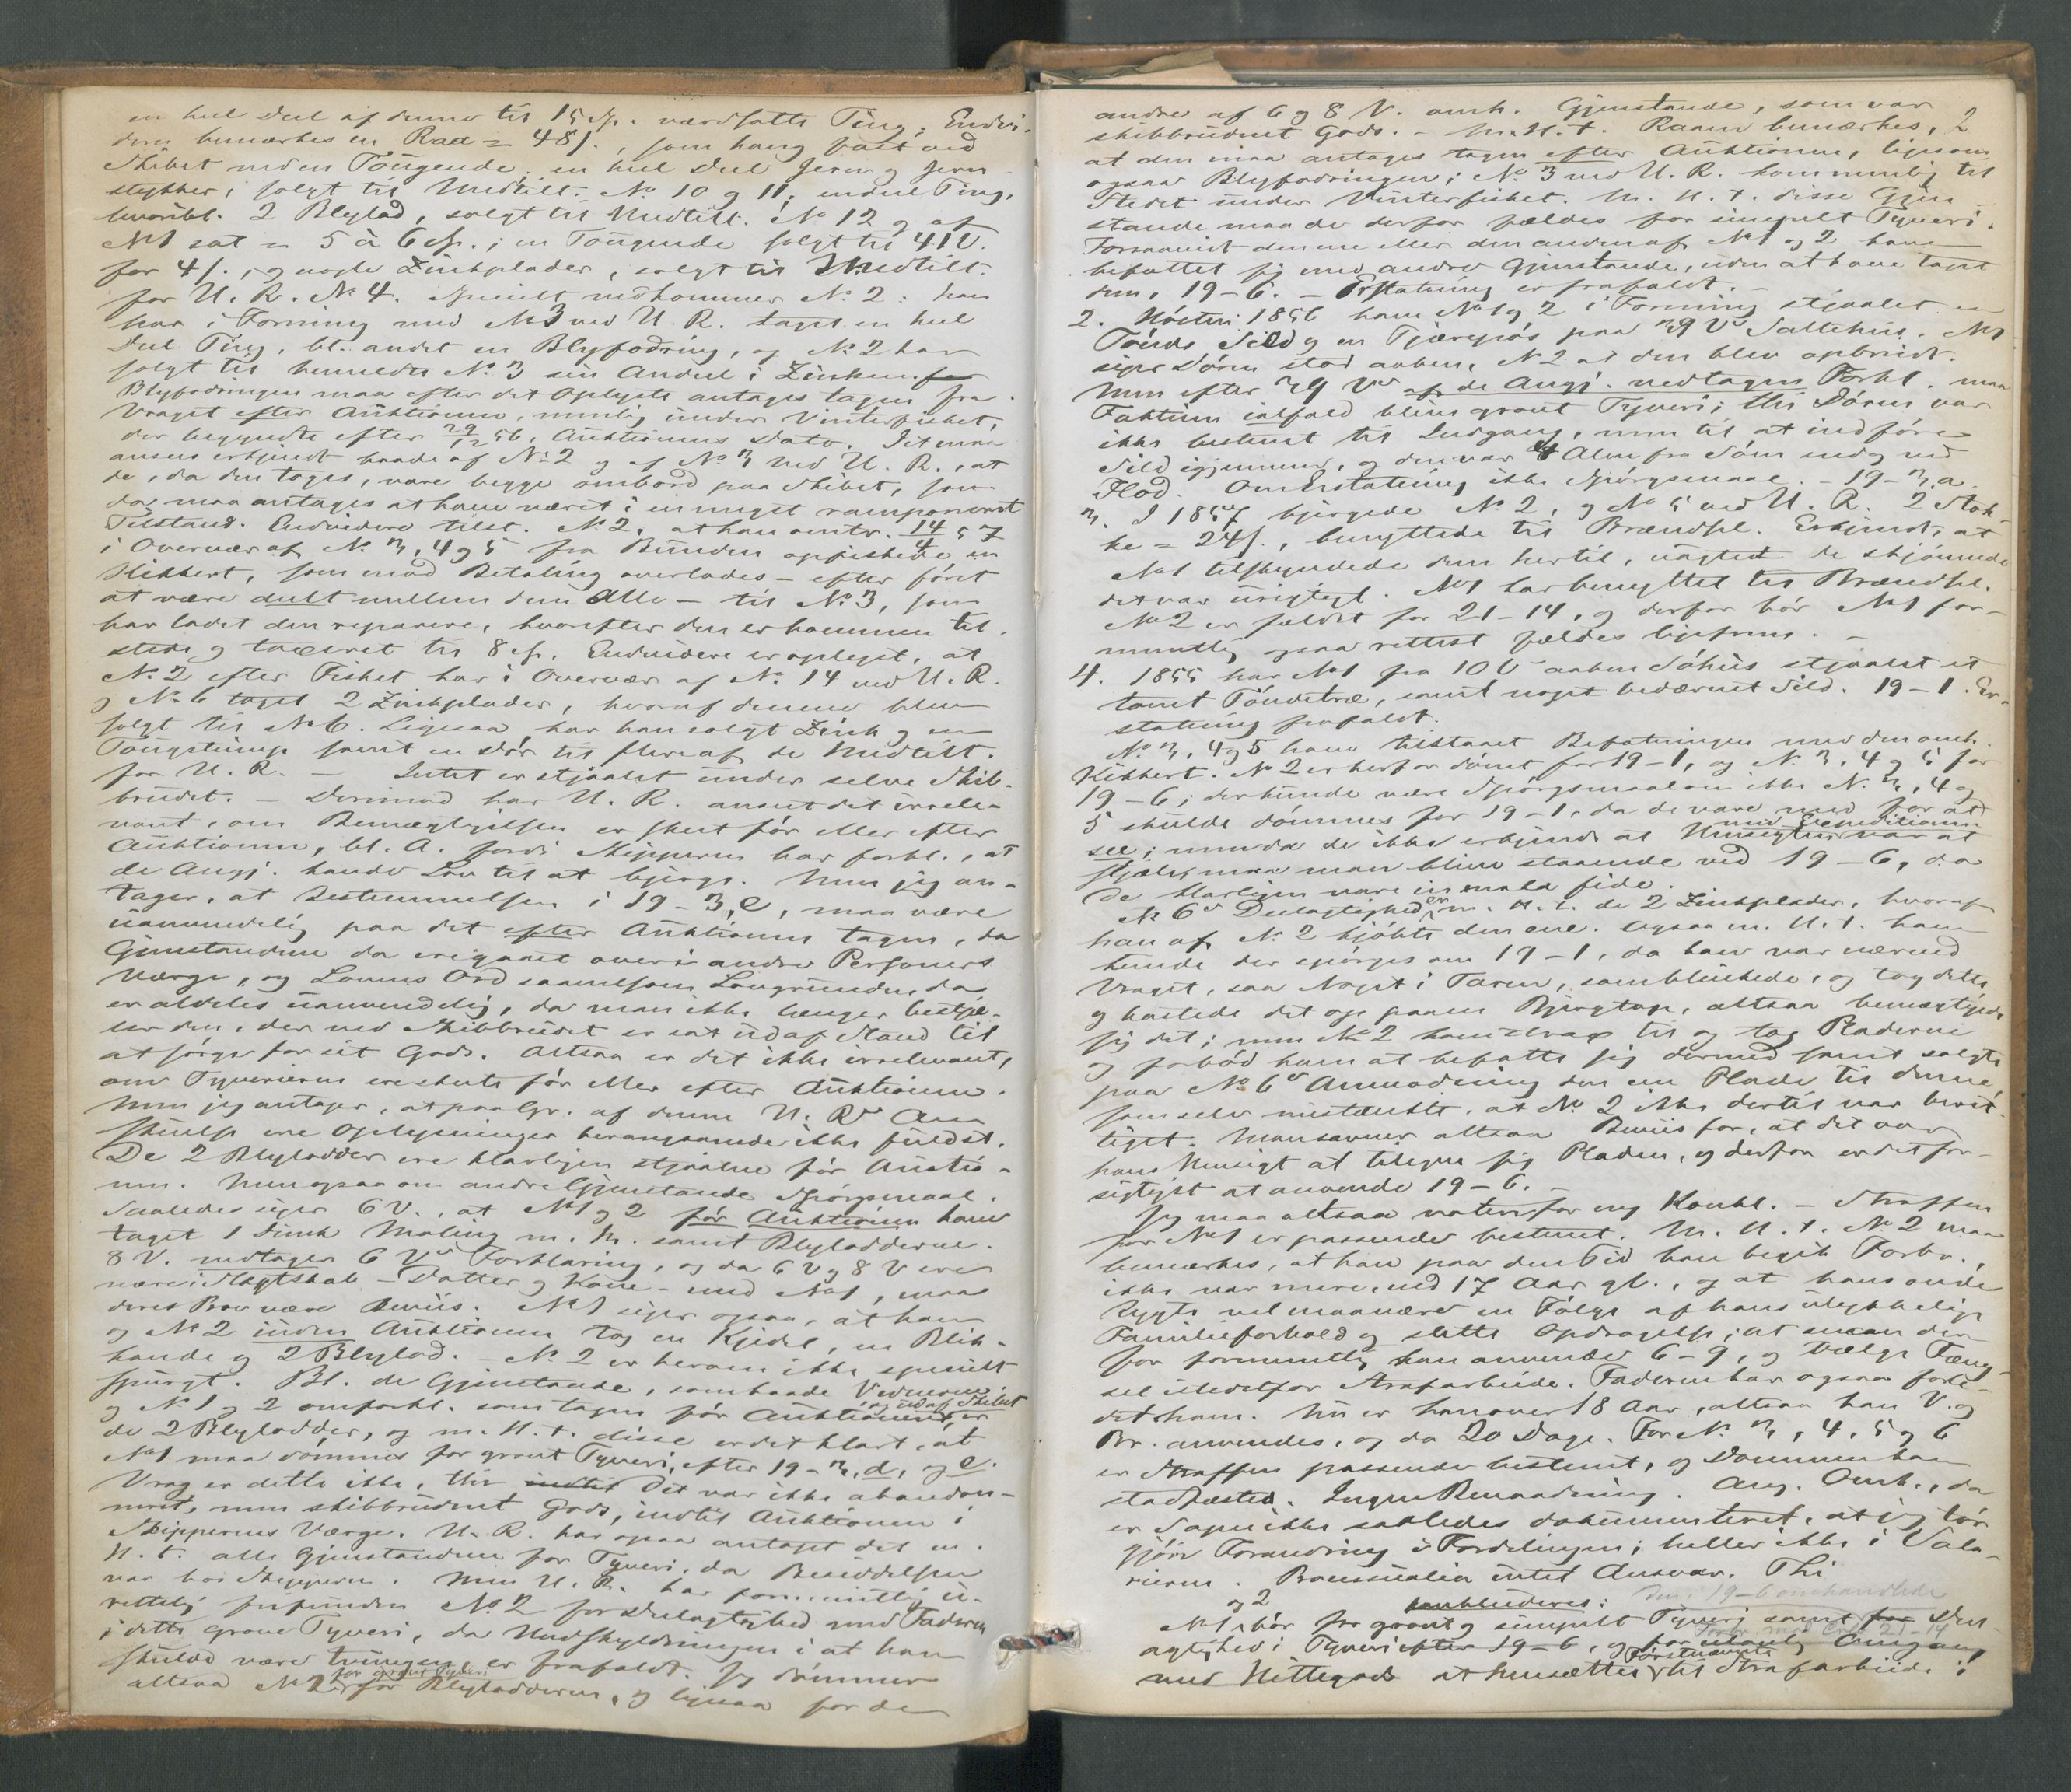 en heel Deel af denne til 15 Sp. værdsatte Ting. Endvi-
dere bemærkes en Raa = 48 s., som hang fast ved
Skibet med en Tougende, en heel Deel Jern og Jern-
stykker, solgt til Medtilt. No 10 og 11, endeel Ting,
hvoribl. 2 Blylod, solgt til Medtilt. No 12 og af
No 1 sat = 5 à 6 Sp.; en Tougende solgt til 4 V.
for 4 s., og nogle Zinkplader, solgt til Medtilt.
for U. R. No 4. Specielt vedkommer No 2: han
har i Forening med No 3 ved U. R. taget en heel
Deel Ting, bl. andet en Blyfodring, og No 2 har
solgt til bemeldte No 3 sin Andeel i Zinken.
Blyfodringen maa efter det Oplyste antages tagen fra
Vraget efter Auktionen, nemlig under Vinterfisket,
der begyndte efter 29/12 56, Auktionens Dato. Det maa
ansees erkjendt baade af No 2 og af No 3 ved U. R., at
de, da den toges, vare begge ombord paa Skibet, som
da maa antages at have været i en meget ramponeret
Tilstand. Endvidere tilst. No 2, at han omtr. 14/4 57
i Overvær af No 3, 4 og 5 fra Bunden opfiskede en
Kikkert, som mod Betaling overlodes - efter først
at være deelt mellem dem Alle - til No 3, som
har ladet den reparere, hvorefter den er kommen til-
stede og taxeret til 8 Sp. Endvidere er oplyst, at
No 2 efter Fisket har i Overvær af No 14 ved U. R.
og No 6 taget 2 Zinkplader, hvoraf denne blev
solgt til No 6. Ligesaa har han solgt Zink og en
Tougstump samt en Dør til flere af de Medtilt.
for U. R. - Intet er stjaalet under selve Skib-
bruddet. - Derimod har U. R. anseet det irrele-
vant, om Bemægtigelsen er skeet før eller efter
Auktionen, bl. A. fordi Skipperen har forkl., at
de Angj. havde Lov til at bjerge. Men jeg an-
tager, at Bestemmelsen i 19-3, e, maa være
uanvendelig paa det efter Auktionen tagne, da
Gjenstandene da ere gaaet over i andre Personers
Værge, og Lovens Ord saavelsom Lovgrunden da
er aldeles uanvendelig, da man ikke længer bestjæ-
ler den, der ved Skibbruddet er sat ud af Stand til
at sørge for sit Gods. Altsaa er det ikke irrelevant,
om Tyverierne ere skeete før eller efter Auktionen.
Men jeg antager, at paa Gr. af denne U. R's An-
skuelse ere Oplysningerne herangaaende ikke fuldst.
De 2 Blylodder ere klarligen stjaalne før Auctio-
nen. Men ogsaa om andre Gjenstande Spørgsmaal.
Saaledes siger 6 V., at No 1 og 2 før Auktionen have
taget 1 Dunk Maling m. M. samt Blylodderne.
8 V. vedtager 6 V's Forklaring, og da 6 V og 8 V ere
nære i Slægtskab - Datter og Kone - med No 1, maa
deres Prov være Beviis. No 1 siger ogsaa, at han
og No 2 inden Auktionen tog en Kjedel, en Blik-
kande og 2 Blylod. - No 2 er herom ikke specielt
spurgt. Bl. de Gjenstande, som baade Vidnerne
og No 1 og 2 omforkl. som tagne før Auktionen og ud af Skibet, er
de 2 Blylodder, og m. H. t. disse er det klart, at
No 1 maa dømmes for grovt Tyveri, efter 19-3, d, og e.
Vrag er dette ikke, thi det var ikke abandon-
neret, men skibbruddent Gods, indtil Auktionen i
Skipperens Værge. U. R. har ogsaa antaget det m.
H. t. alle Gjenstandene for Tyveri, da Besiddelsen
var hos Skipperen. Men U. R. har formentlig u-
rettelig frifunden No 2 for Deelagtighed med Faderen
i dette grove Tyveri, da Undskyldningen i at han
skulde være tvungen er frafaldt. Jeg dømmer
altsaa No 2 for grovt Tyveri for Blylodderne, og ligesaa for de
andre af 6 og 8 V. omh. Gjenstande, som var
skibbruddent Gods. - M. H. t. Raaen bemærkes, 2
at den maa antages tagen efter Auktionen, ligesom
ogsaa Blyfodringen; No 3 ved U. R. kom nemlig til
Stedet under Vinterfisket. M. H. t. disse Gjen-
stande maa de derfor fældes for simpelt Tyveri.
Forsaavidt den ene eller den anden af No 1 og 2 have
befattet sig med andre Gjenstande, uden at have taget
dem, 19-6. - Erstatning er frafaldt. -
2. Høsten 1856 have No 1 og 2 i Forening stjaalet en
Tønde Sild og en Tjærepøs paa 39 V's Saltehuus. No 1
siger Døren stod aaben, No 2 at den blev opbrudt.
Men efter 39 V's af de Angj. vedtagne Forkl. maa
Faktum ialfald blive grovt Tyveri; thi Døren var
ikke bestemt til Indgang, men til at indføre
Sild igjennem, og den var 4 Alen fra Søen endog ved
Flod. Om Erstatning ikke Spørgsmaal. - 19-3, a.
3. I 1857 bjergede No 2, og No 5 ved U. R. 2 Stok-
ke = 24 s., benyttede til Brændsel. Erkjendt, at
No 1 tilskyndede dem hertil, uagtet de skjønnede
det var urigtigt. No 1 har benyttet til Brændsel.
No 2 er fældet for 21-14, og derfor bør No 1 for-
mentlig ogsaa rettest fældes ligefrem. -
4. 1855 har No 1 fra 10 V's aabne Søhuus stjaalet et
tomt Tøndetræ, samt noget bedærvet Sild. 19-1. Er-
statning frafaldt.
No 3, 4 og 5 have tilstaaet Befatningen med den omh.
Kikkert. No 2 er herfor dømt for 19-1, og No 3, 4 og 5 for
19-6; der kunde være Spørgsmaal om ikke No 3, 4 og
5 skulde dømmes for 19-1, da de vare med for at
see; men da de ikke erkjendt at Hensigten med Expeditionen var at
stjæle, maa man blive staaende ved 19-6, da
de klarligen vare in mala fide.
No 6's Deelagtighed er m. H. t. de 2 Zinkplader, hvoraf
han af No 2 kjøbte den ene. Ogsaa m. H. t. ham
kunde der spørges om 19-1, da han var nærved
Vraget, saa Noget i Taren, som blinkede, og tog dette
og halede det op paa en Bjergtop, altsaa bemægtigede
sig det; men No 2 kom strax til og tog Pladerne
og forbød ham at befatte sig dermed samt solgte
paa No 6's Anmodning den ene Plade til denne,
som selv mistænkte, at No 2 ikke dertil var beret-
tiget. Man savner altsaa Beviis for, at det var
hans Hensigt at tilegne sig Pladen, og derfor er det for-
sigtigst at anvende 19-6. -
Jeg maa altsaa votere for ny Konkl. - Straffen
for No 1 er passende bestemt. M. H. t. No 2 maa
bemærkes, at han paa den Tid han begik Forbr.,
ikke var mere, end 17 Aar gl., og at hans onde
Rygte vel maa være en Følge af hans ulykkelige
Familieforhold og slette Opdragelse; at man der-
for formentlig kan anvende 6-9, og vælge Fæng-
sel istedetfor Strafarbeide. Faderen har ogsaa forle-
det ham. Nu er han over 18 Aar, altsaa kan V. og
Br. anvendes, og da 20 Dage. For No 3, 4, 5 og 6
er Straffen passende bestemt, og Dommen kan
stadfæstes. Ingen Benaadning. Ang. Omk., da
er Sagen ikke saaledes dokumenteret, at jeg tør
gjøre Forandring i Fordelingen; heller ikke i Sala-
rierne. Processualia intet Ansvar. Thi
konkluderes: den i 19-6 omhandlede
No 1 og 2 bør for grovt og simpelt Tyveri samt for Deel-
agtighed i Tyveri efter 19-6, og for ulovlig Omgang
med Hittegods at hensættes Førstnævnte til Strafarbeide i